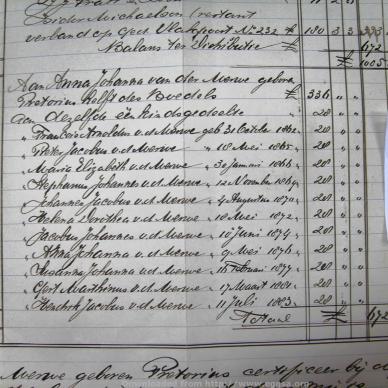 verband op ged. Vlakpoort No 232 £ 150 3 3 333
Balans ter Distributie £ 672
£ 1005
Aan Anna Johanna van der Merwe geboren
Pretorius helft des Boedels £ 336 " "
Aan dezelfde één kindsgedeelte " 28 " "
" Francois Arnoldus v.d. Merwe geb 31 October 1862 " 28 " "
" Pieter Jacobus v.d. Merwe " 18 Mei 1865 " 28 " "
" Maria Elizabeth v.d. Merwe " 30 Januari 1866 " 28 " "
" Stephanus Johannes v.d. Merwe " 12 November 1869 " 28 " "
" Johannes Jacobus v.d. Merwe " 4 Augustus 1870 " 28 " "
" Helena Dorothea v.d. Merwe " 10 Mei 1872 " 28 " "
" Jacobus Johannes v.d. Merwe " 10 Juni 1874 " 28 " "
" Anna Johanna v.d. Merwe " 9 Mei 1876 " 28 " "
" Susanna Johanna v.d. Merwe " 18 Februari 1877 " 28 " "
" Gert Marthinus v.d. Merwe " 17 Maart 1881 " 28 " "
" Hendrik Jacobus v.d. Merwe " 11 Juli 1883 " 28 " "
Totaal £ 672
Merwe geboren Pretorius certificeer bij
Downloaded from www.eggsa.org